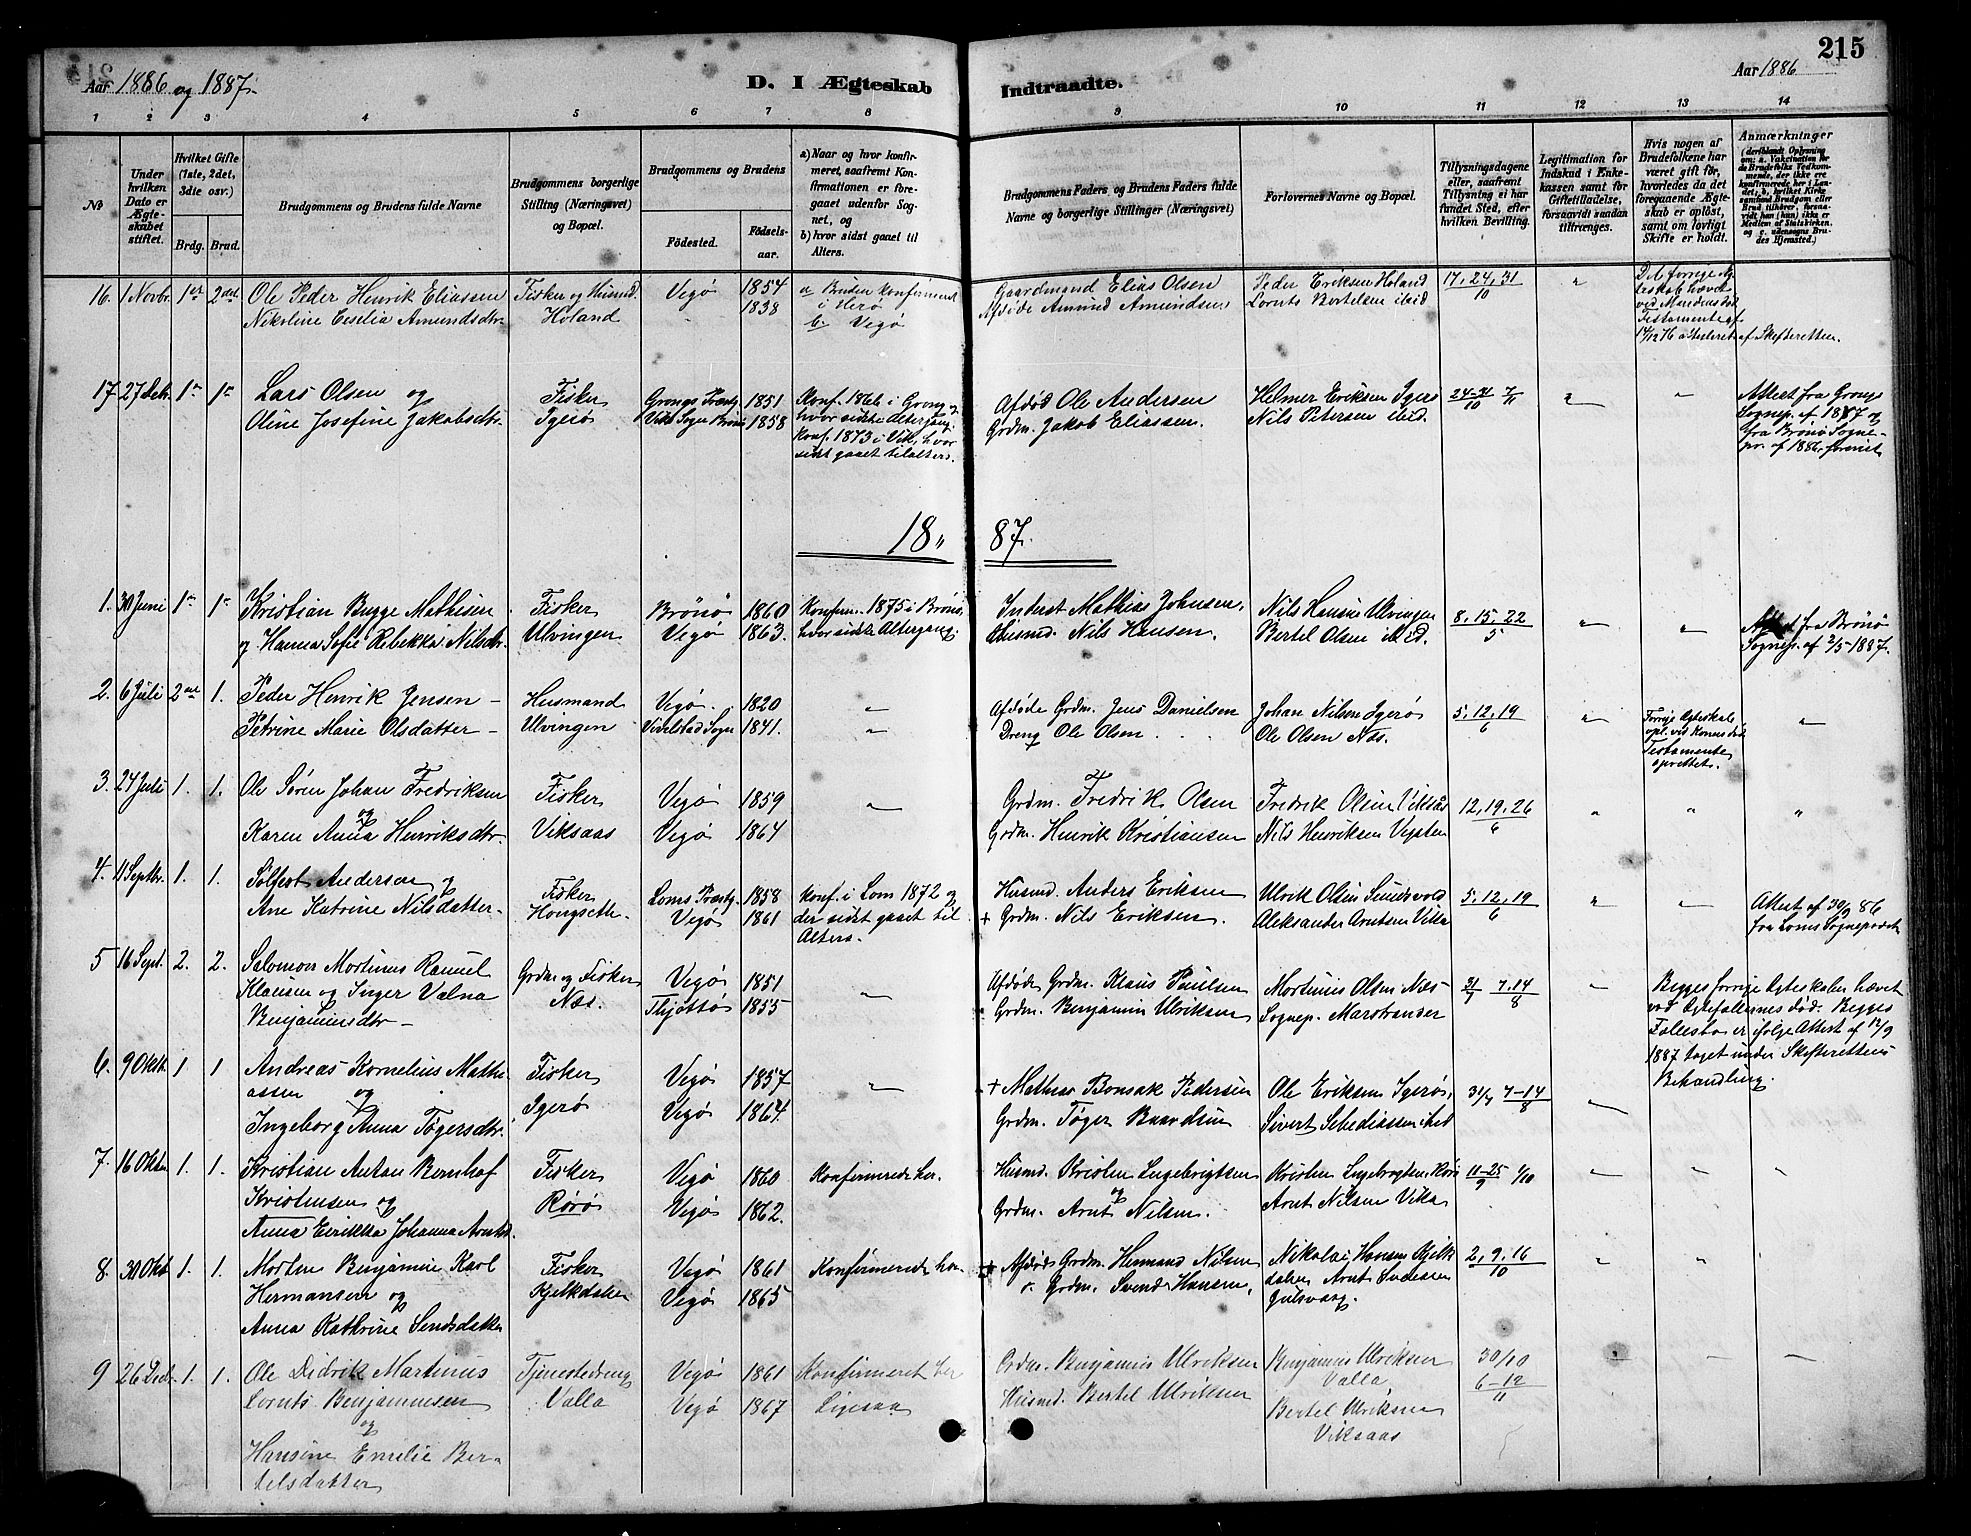 215
Aar 1886 og 1887.
D. I Ægteskab
Indtraadte.
Aar 1886
1 2 3 4 5 6 7 8 9 10 11 12 13 14
No
Under hvilken Dato er Ægteskabet stiftet.
Hvilket Gifte (1ste, 2det, 3die osv.)
Brdg. Brud.
Brudgommens og Brudens fulde Navne
Brudgommens borgerlige Stilling (Næringsvei) og Bopæl.
Brudgommens og Brudens
Fødested.
Fødselsaar.
a) Naar og hvor konfirmeret, saafremt Konfirmationen er foregaaet udenfor Sognet, og
b) hvor sidst gaaet til Alters.
Brudgommens Faders og Brudens Faders fulde Navne og borgerlige Stillinger (Næringsvei)
Forlovernes Navne og Bopæl.
Tillysningsdagene eller, saafremt Tillysning ei har fundet Sted, efter hvilken Bevilling.
Legitimation for Indskud i Enkekassen samt for Giftetilladelse, forsaavidt saadan tiltrænges.
Hvis nogen af Brudefolkene har været gift før, hvorledes da det foregaaende Ægteskab er opløst, samt om lovligt Skifte er holdt.
Anmærkninger
16. 1 Novbr. 1ste 2det Ole Peder Henrik Eliassen Fisker og Husmd. Vegø 1854 a Bruden konfirmeret Gaardmand Elias Olsen Peder Eriksen Holand 17, 24, 31/10 "
Nikoline Cecilia Amundsdtr. Holand 1838 i Herø b. Vegø Afdøde Amund Amundsen Lornts Bertelsen ibid
Det forrige Ægteskab hævet ved Mandens død. Testamente af 14/12 76 af Skifteretten.
17. 27 Dek. 1 1 Lars Olsen og Fisker Grongs Præstg. 1851 Konf. 1866 i Grong og Afdød Ole Andersen Helmer Eriksen Igerø 24-31/10 7/11 " "
Oline Josefine Jakobsdtr. Igerø Viks Sogn Brønø 1858 hvor sidst Altergang. Konf. 1873 i Vik, hvor sidst gaaet til alters. Grdm. Jakob Eliassen. Nils Petersen ibid.
Attest fra Grongs Sognep. af 1887 og fra Brønø Sognepr. af 1886 forevist
18 87.
1. 30 Juni 1 1 Kristian Bugge Mathisen Fisker Brønø 1860 Konfirm. 1875 i Brønø, Inderst Mathias Johnsen, Nils Hansen Ulvingen 8. 15. 22/5 " "
og Hanna Sofie Rebekka Nilsdtr. Ulvingen Vegø 1863. hvor sidst Altergang. Husmd. Nils Hansen. Bertel Olsen ibid.
Attest fra Brønø Sognep. af 2/5 1887.
2. 6 Juli 2det 1. Peder Henrik Jensen – Husmand Vegø. 1820 " Afdøde Grdm. Jens Danielsen Johan Nilsen Igerø 5. 12, 19/6 "
Petrine Marie Olsdatter – Ulvingen Vevelstad Sogn 1841. " Dreng Ole Olsen. Ole Olsen Næs.
Forrige Ægteskab opl. ved Konens død. Testamente oprettet. "
3. 24 Juli 1. 1. Ole Søren Johan Fredriksen Fisker Vegø 1859 " Grdm. Fredrik Olsen Fredrik Olsen Viksås 12, 19. 26/6 " " "
og
Karen Anna Henriksdtr. Viksaas Vegø 1864 Grdm. Henrik Kristiansen Nils Henriksen
4. 11 Septbr. 1. 1. Solfest Andersen og Fisker Loms Præstg. 1858 Konf. i Lom 1872 og Husmd. Anders Eriksen Ulrik Olsen Sundsvold 5. 12. 19/6 " "
Ane Katrine Nilsdatter Hongseth Vegø 1861 der sidst gaaet til Alters. + Grdm. Nils Eriksen. Aleksander Arntsen Vika
Attest af 30/9 86 fra Loms Sognepræst
5 16 Sept. 2. 2. Salomon Mortinus Ramel Grdm. og Fisker Vegø 1851 " Afdøde Grdm. Klaus Paulsen Mortinus Olsen Næs 31/7 7.14/8 "
Klausen og Inger Valna Næs. Thjøttø 1855 Grdm. Benjamin Ulriksen Sognep. Marstrander
Benjaminsdtr –
Begges forrige Ægteskaber hævet ved Ægtefællernes død. Begges Fællesbo er ifølge Attest af 12/9 1887 taget under Skifterettens Behandling.
6. 9 Oktbr. 1 1 Andreas Kornelius Mathiassen og Fisker Vegø 1857 " + Mathias Bonsak Pedersen Ole Eriksen Igerø, 31/7 7–14/8 "
Ingeborg Anna Tøgersdtr. Igerø Vegø 1864. Grdm. Tøger Baardsen Sivert ibid
7. 16 Oktbr. 1. 1. Kristian Antan Bernhof Fisker Vegø 1860 Konfirmerede her. Husmd. Kristen Ingebrigtsen Kristen Ingebrigtsen Rørø 11–25/9 1/10 " " "
Kristensen og Rørø Vegø 1862. og
Anna Eirikka Johanna Arntsd. Grdm. Arnt Nilsen. Arnt Nilsen Vika
8. 30 Okt. 1. 1. Morten Benjamin Karl Fisker Vegø 1861 Konfirmerede her. + Afdøde Grdm. Hermand Nilsen Nikolai Hansen Kjelkdalen 2, 9. 16/10 " "
Hermansen og Kjelkdalen Vegø 1865 Grdm. Svend Hansen, Arnt
Anna Kathrine Sendsdatter Gulsvaag.
9 26 Decbr. 1. 1. Ole Didrik Martinus Tjenestedreng Vegø 1861 Konfirmeret her Grdm. Benjamin Ulriksen Benjamin Ulriksen Valla 30/10 6–12/11 " – –
Lornts Benjaminsen Valla Vegø 1867 Ligesaa Husmd. Bertel Ulriksen Bertel Ulriksen Viksaas
og
Hansine Emilie Bertelsdatter